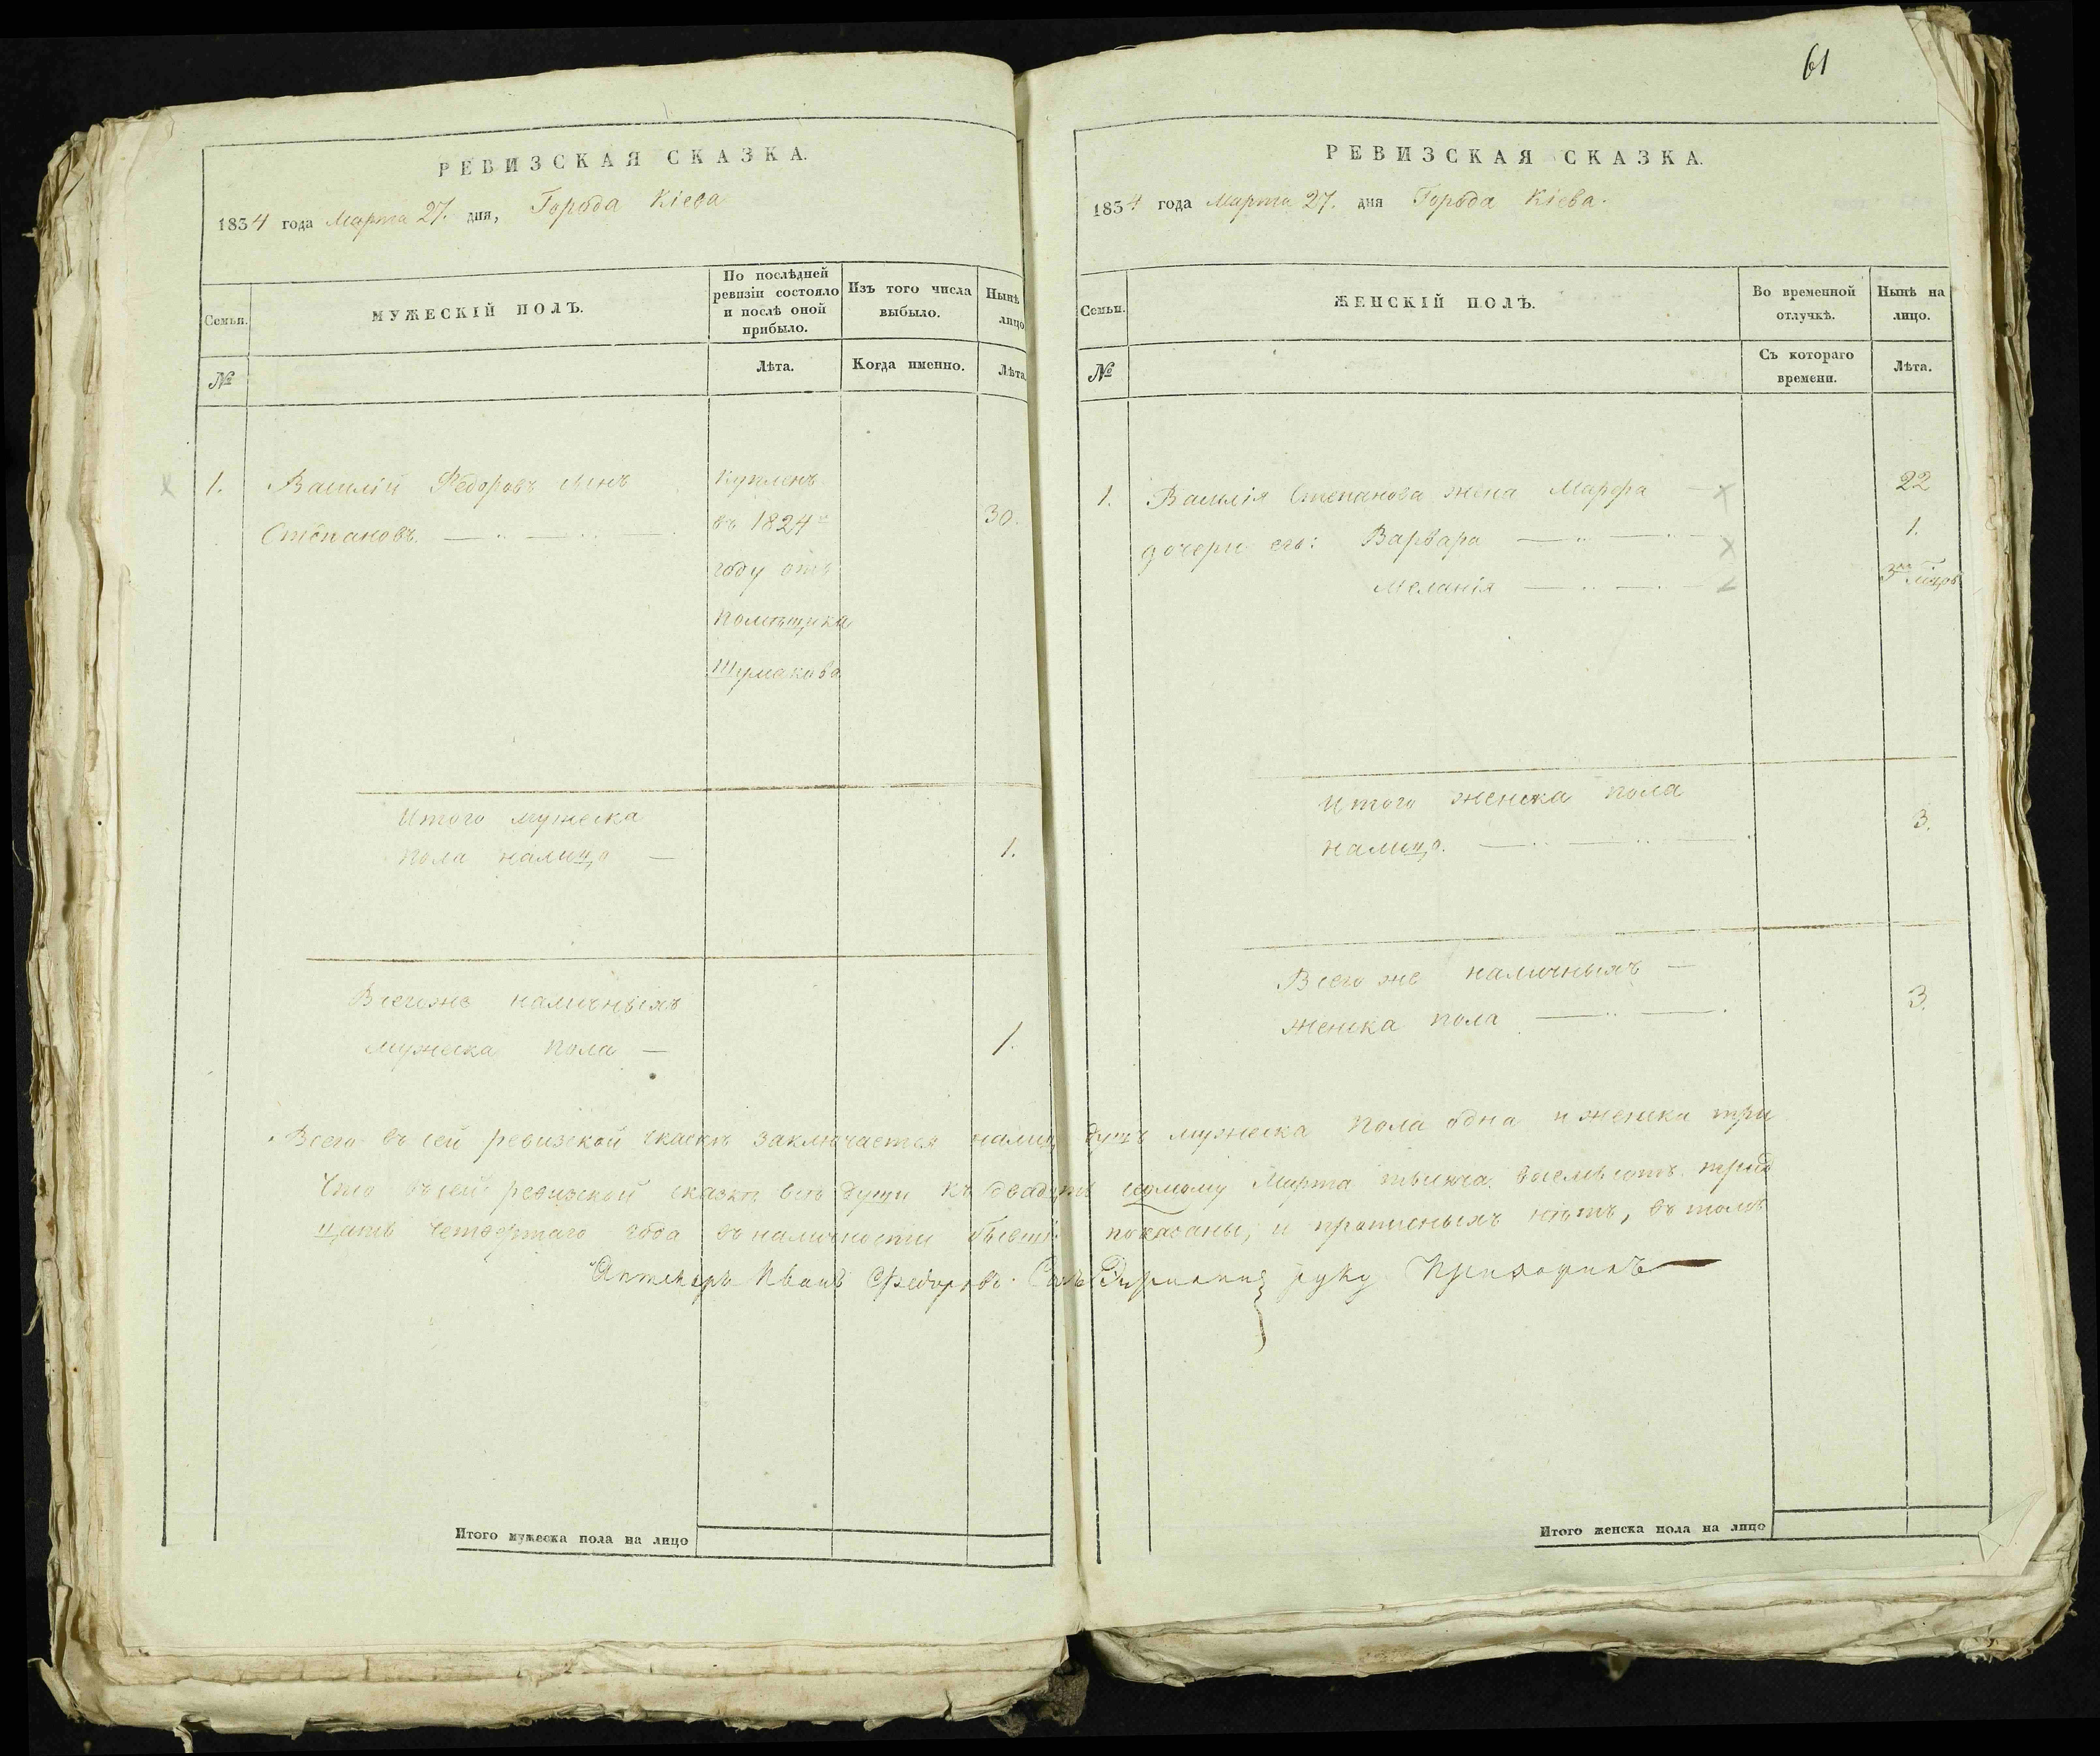 РЕВИЗСКАЯ СКАЗКА.
1834 года Марта 27. дня, Города Кіева
Семьи.
МУЖЕСКІЙ ПОЛЪ.
По послѣдней
ревизіи состояло
и послѣ оной
прибыло.
Изъ того числа
выбыло.
Нынѣ
лицо
№
Лѣта.
Когда именно.
Лѣта.
1. Василій Федоровъ сынъ
Степановъ.
Купленъ
въ 1824
году отъ
Помѣщика
Шумакова
30.
Итого мужеска
пола налицо — 1.
Всего же наличныхъ
мужеска пола — 1.
Итого мужеска пола на лицо
61
РЕВИЗСКАЯ СКАЗКА.
1834 года Марта 27. дня Города Кіева.
Семьи.
ЖЕНСКІЙ ПОЛЪ.
Во временной
отлучкѣ.
Нынѣ на
лицо.
№
Съ котораго
времени.
Лѣта.
1. Василія Степанова жена Марфа 22
дочери его: Варвара 1.
Меланія
Итого женска пола
налицо. 3.
Всего же наличныхъ —
женска пола 3.
Всего въ сей ревизской скаскѣ заключается налицо душъ мужеска пола одна и женска три
Что въ сей ревизской сказкѣ всѣ души къ двадцать седмому Марта тысяча восемьсотъ трид
цать четвертаго года въ наличности бывші показаны, и прописныхъ нѣтъ, въ томъ
Аптекарь Иванъ Федоровъ руку
Итого женска пола на лицо